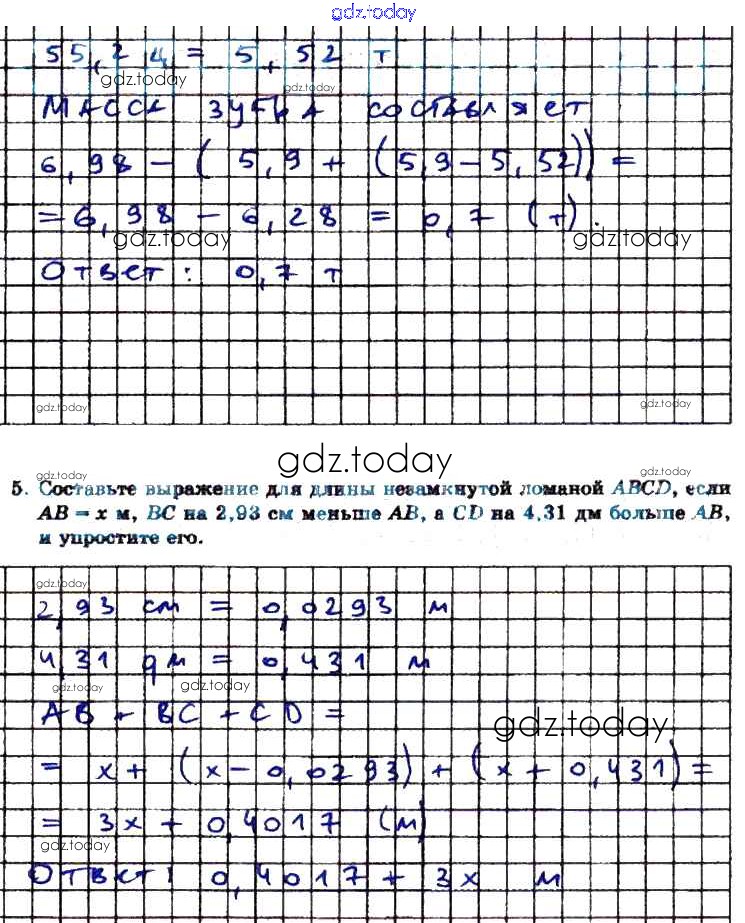 gdz.today
55,24 = 5,52 т
gdz.today gdz.today
Масса зубра составляет
6,98 - (5,9 + (5,9 - 5,52)) =
= 6,98 - 6,28 = 0,7 (т).
gdz.today gdz.today
Ответ: 0,7 т
gdz.today gdz.today
gdz.today
gdz.today gdz.today
5. Составьте выражение для длины незамкнутой ломаной ABCD, если
AB = x м, BC на 2,93 см меньше AB, а CD на 4,31 дм больше AB,
и упростите его.
gdz.today
2,93 см = 0,0293 м
4,31 дм = 0,431 м
gdz.today gdz.today
AB + BC + CD =
gdz.today
= x + (x - 0,0293) + (x + 0,431) =
= 3x + 0,4017 (м)
gdz.today
Ответ: 0,4017 + 3x м